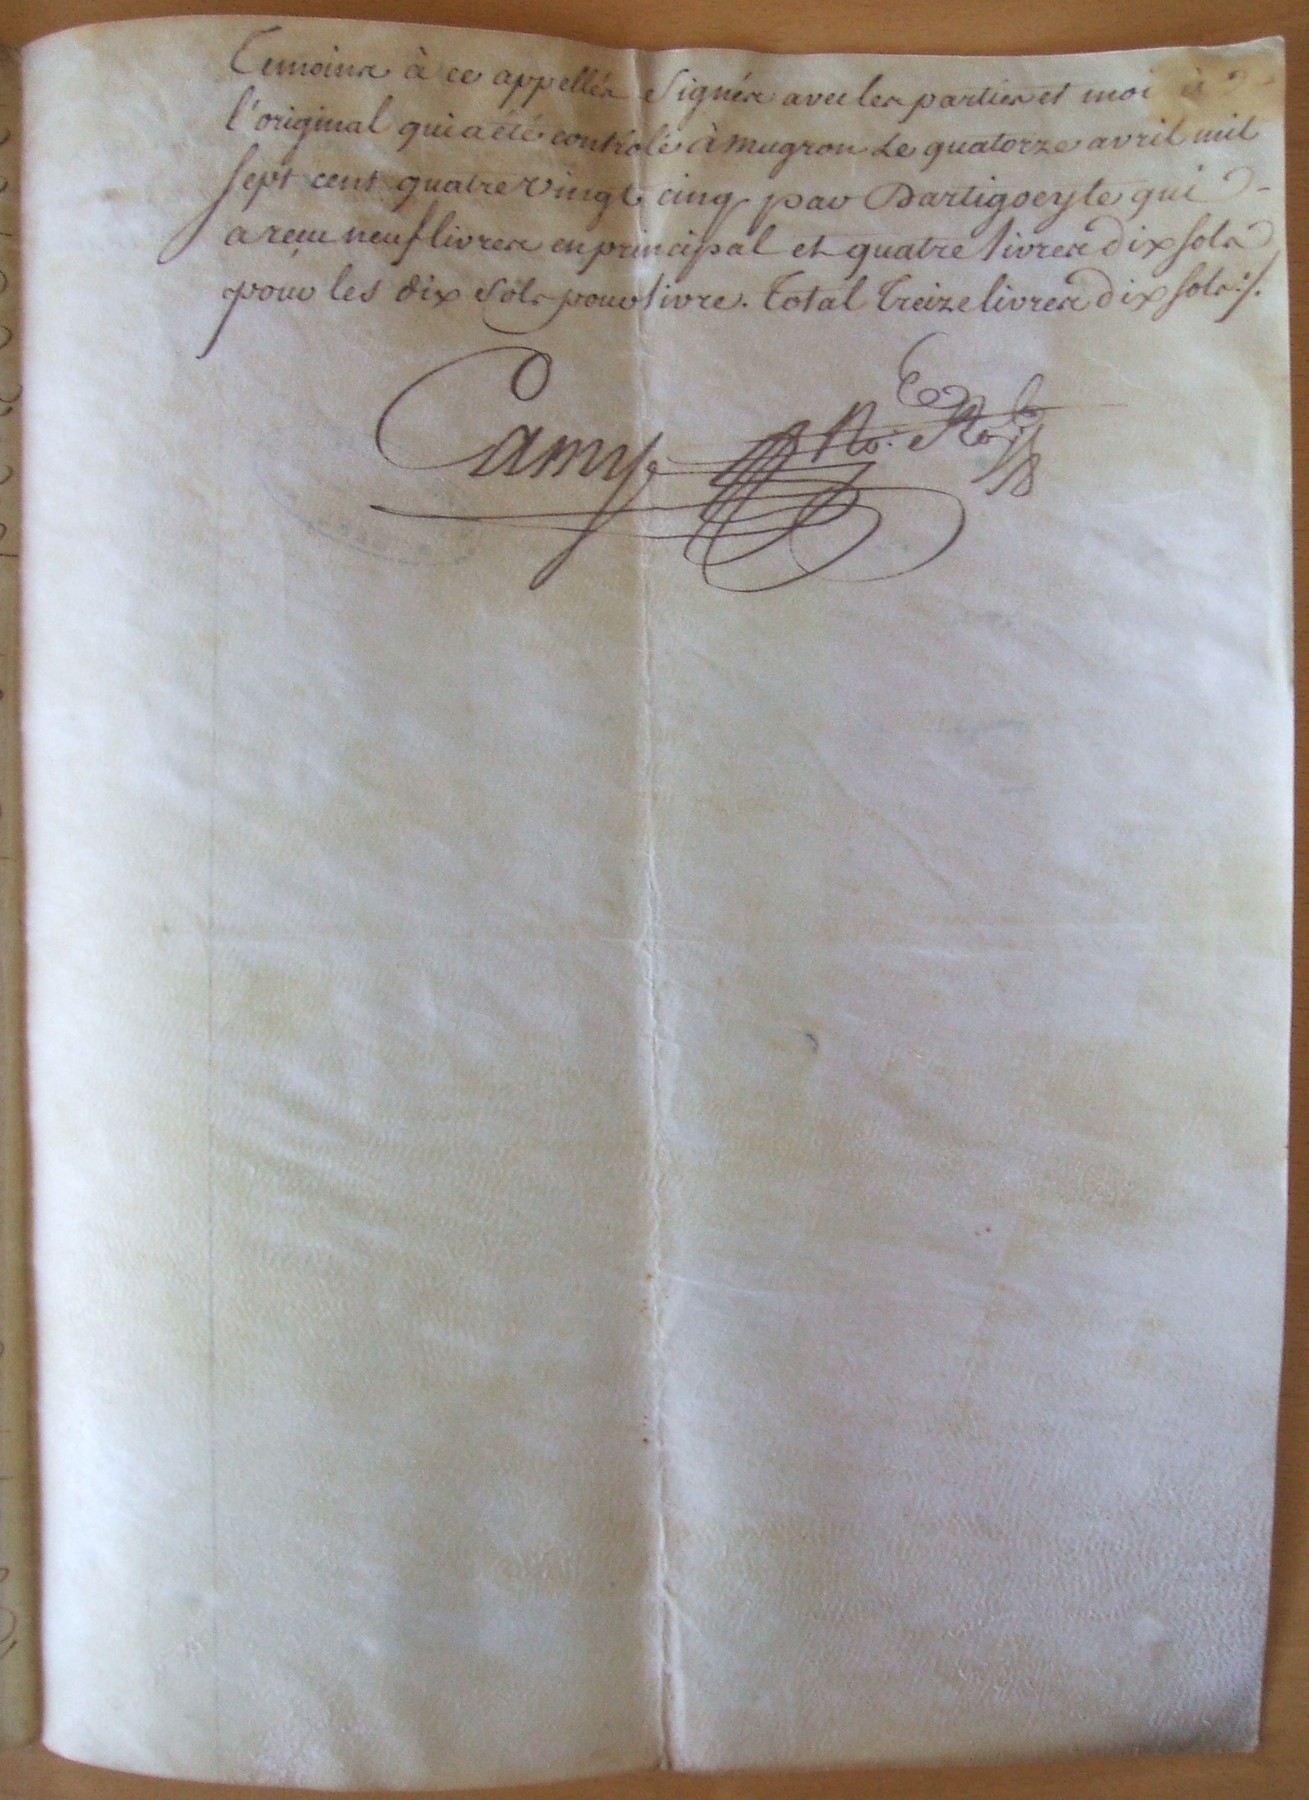 Temoins à ce appellés signés avec les parties et moi à
l'original qui a été controlé à mugron Le quatorze avril mil
sept cent quatre vingt cinq par Dartigoeyte qui
a recu neuf livres en principal et quatre livres dix sols
pour les dix sols pour livre. Total Treize livres dix sols ./.
Camy
No. Royl